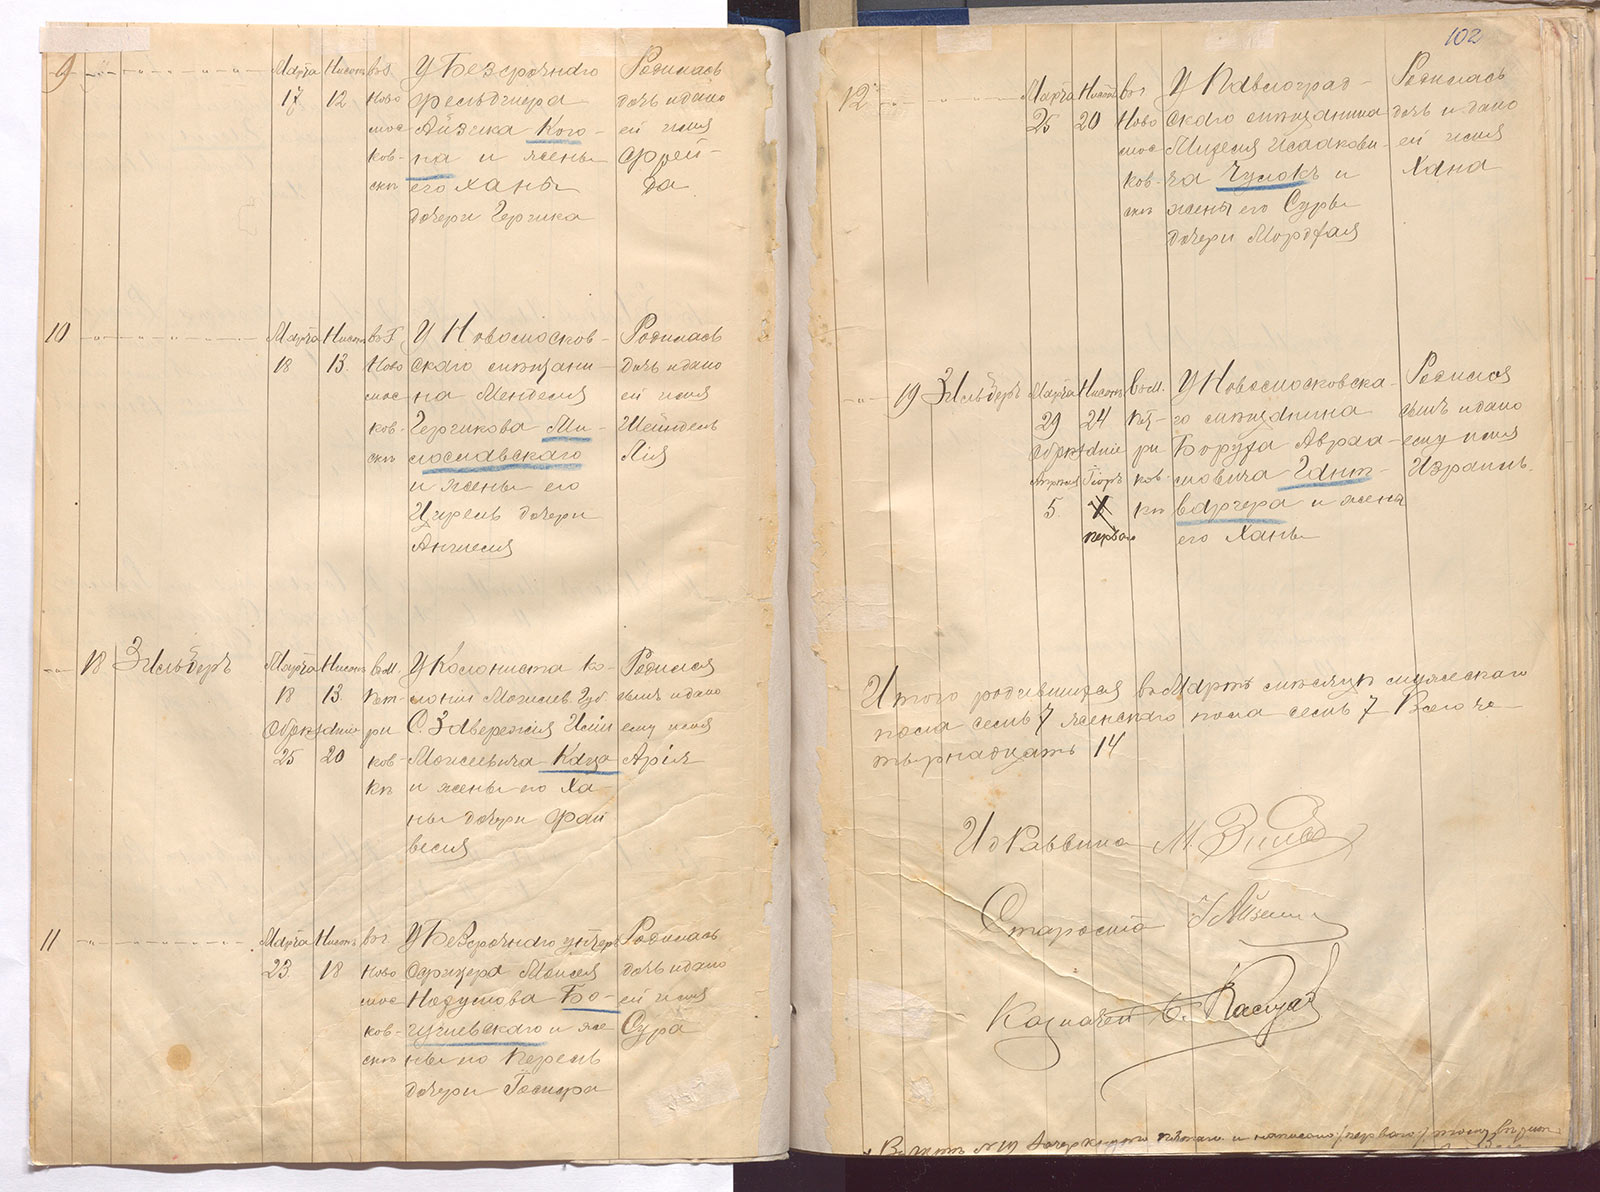 9
Марта
17
Нисонъ
12
въ г.
Ново
мос
ков-
скѣ
У Безсрочнаго
фельдшера
Айзика Кого-
на и жены
его Ханы
дочери Гершка
Родилась
дочь и дано
ей имя
Фрей-
да
10
Марта
18
Нисонъ
13.
въ г.
Ново
мос
ков-
скѣ
У Новомосков-
скаго мѣщани-
на Менделя
Гершкова Ми-
лославскаго
и жены его
Цирель дочери
Родилась
дочь и дано
ей имя
Шейндель
Лія
18
Зильберъ
Марта
18
Обрѣзаніе
25
Нисонъ
13
20
въ м.
Пет-
ри
ков-
кѣ
У Колониста ко-
лоніи Могилев. Губ.
Моисеевича Каца
и жены его Ха-
ны дочери Фай
веля
Родился
сынъ и дано
ему имя
Арія
11
Марта
23
Нисонъ
18
въ г.
Ново
мос
ков-
скѣ
У Безсрочнаго унтеръ
Офицера Моисея
Бо-
гуславскаго и же
ны его Перель
дочери
Родилась
дочь и дано
ей имя
Сура
102
12
Марта
25
Нисонъ
20
въ г.
Ново
мос
ков-
скѣ
У Павлоград-
скаго мѣщанина
Исаакови-
ча Чулокъ и
жены его Суры
дочери Мордхая
Родилась
дочь и дано
ей имя
Хана
19
Зильберъ
Марта
29
Обрѣзаніе
Апрѣля
5.
Нисонъ
24
Іоръ
перваго
въ м.
Пет-
ри
ков-
кѣ
У Новомосковска-
го мѣщанина
Боруха Абра-
мовича Гант-
варгера и жены
его Ханы
Родился
сынъ и дано
ему имя
Израиль.
Итого родившихся въ Мартѣ мѣсяцѣ мужескаго
пола семь 7 женскаго пола семь 7 Всего че-
тырнадцать 14
И д Раввина М.
Староста
Казначей